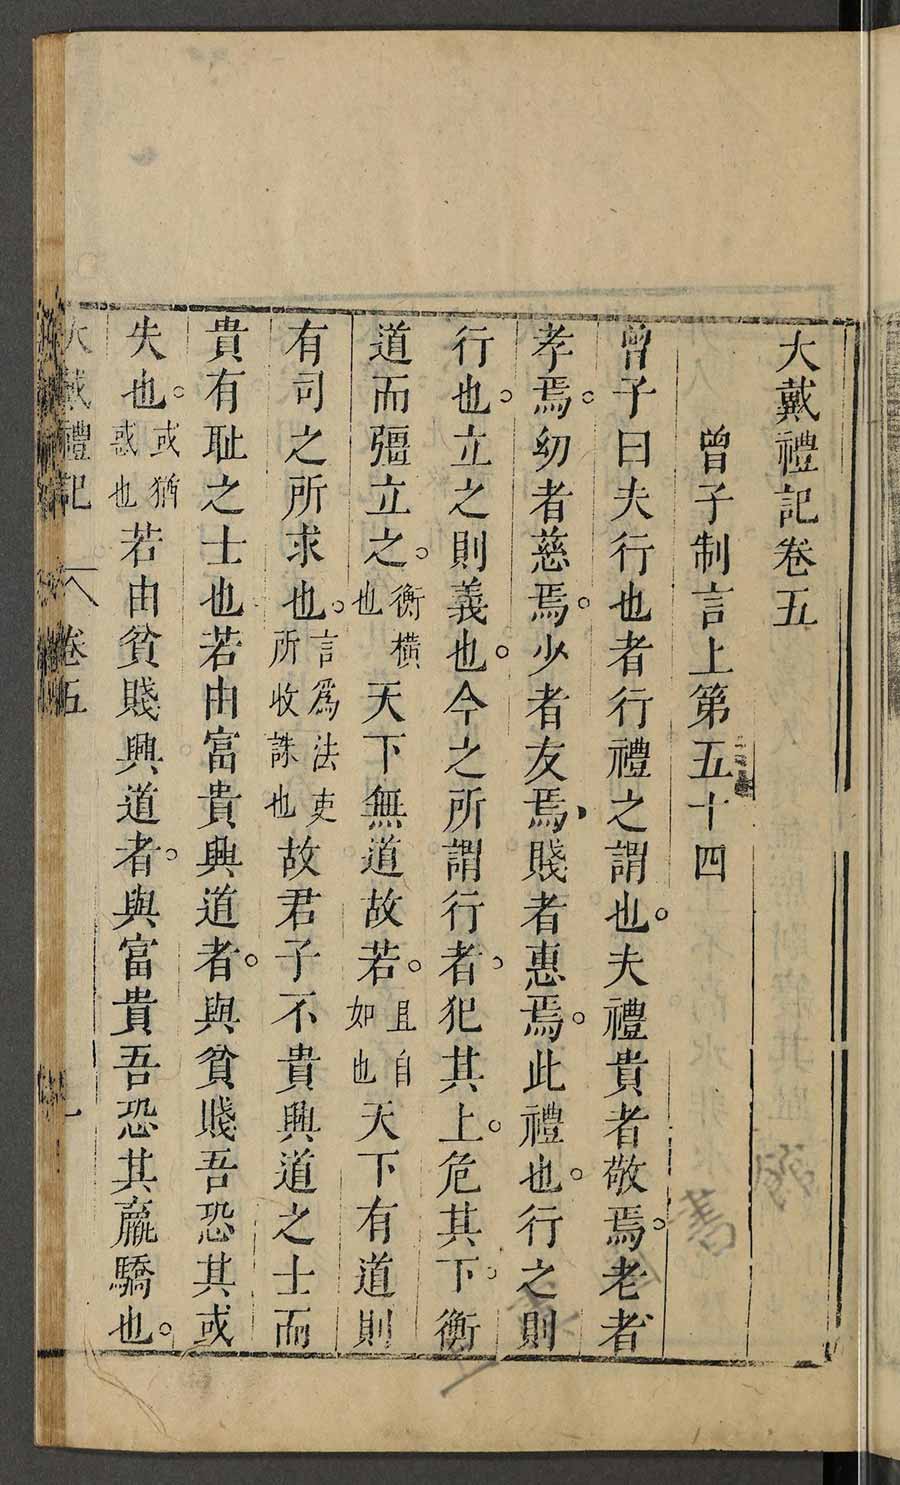 大戴禮記卷五
曾子制言上第五十四
曾子曰夫行也者行禮之謂也。夫禮貴者敬焉。老者
孝焉。幼者慈焉。少者友焉賤者惠焉。此禮也。行之則
行也。立之則義也。今之所謂行者犯其上。危其下。衡
道而彊立之。衡橫也天下無道故若。且自如也天下有道則
有司之所求也。言爲法吏所收誅也故君子不貴興道之士而
貴有耻之士也若由富貴興道者。與貧賤吾恐其或
失也。或猶惑也若由貧賤興道者。與富貴吾恐其羸驕也。
大戴禮記 卷五 一